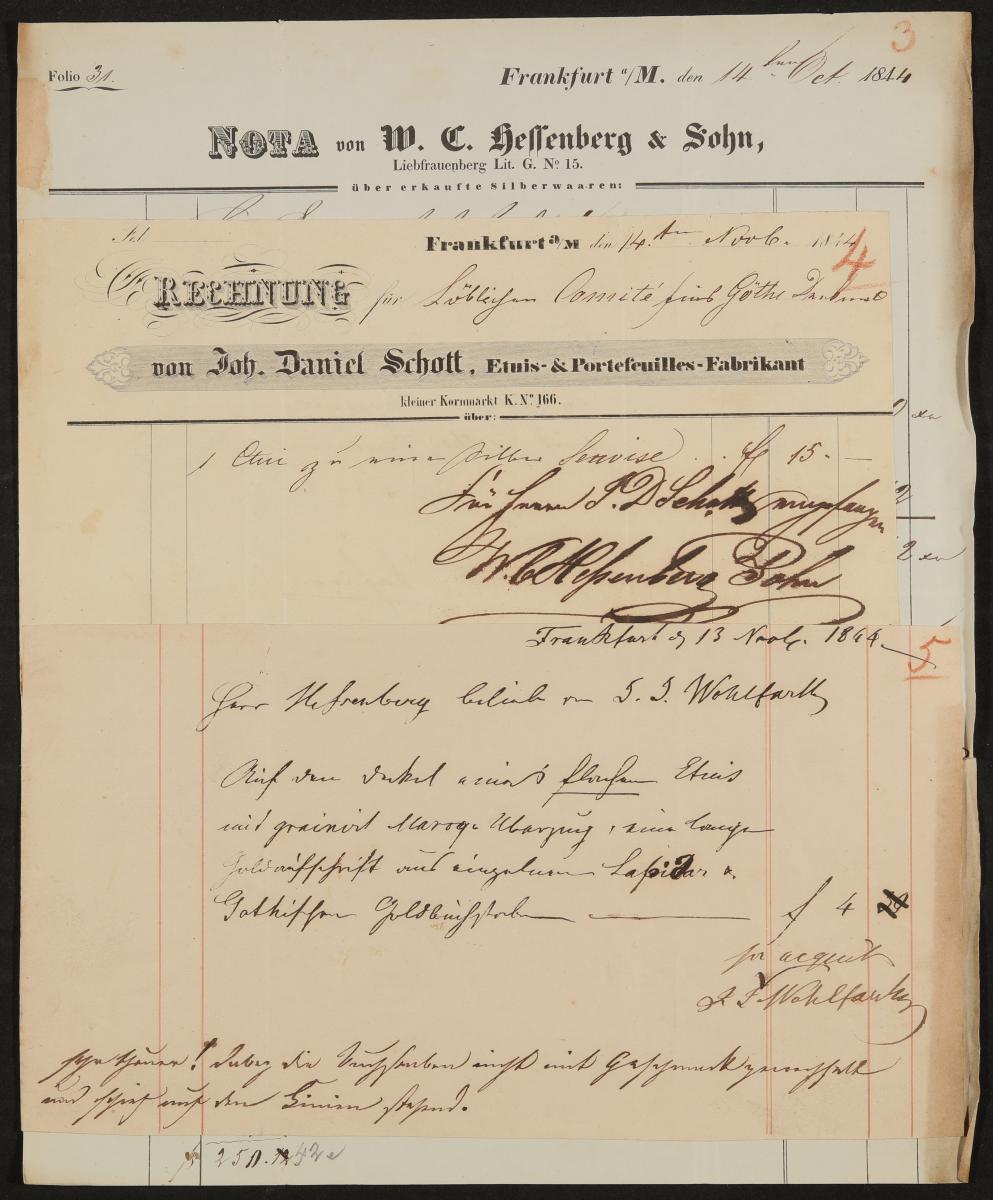 3
Folio 31.
Frankfurt a/M. den 14ten Oct 1844
NOTA von W. C. Hessenberg & Sohn,
Liebfrauenberg Lit. G. No 15.
über erkaufte Silberwaaren:
Fol
Frankfurt a/M den 14.ten Novb. 1844
4
RECHNUNG für Löblichen Comité fürs Göthe Denkmal
von Joh. Daniel Schott, Etuis- & Portefeuilles-Fabrikant
kleiner Kornmarkt K. No 166.
über:
1 Etui zu einem silber Servise . . f 15. —
Für Herrn J. D Schott empfangen
W. C Hessenberg & Sohn
Frankfurt d 13 Novb. 1844.
5
Herr Hessenberg beliebe von J. F. Wohlfarth
Auf den Dekel eines flachen Etuis
mit grainirt Maroq. Uberzug, eine lange
Goldaufschrift aus einzelnen Lapidar u.
Gothischen Goldbuchstaben — f 4
pr acquit
J. F. Wohlfarth
sehr theuer! dabey die Buchstaben nicht mit Geschmack gewechselt
und schief auf den Linien stehend.